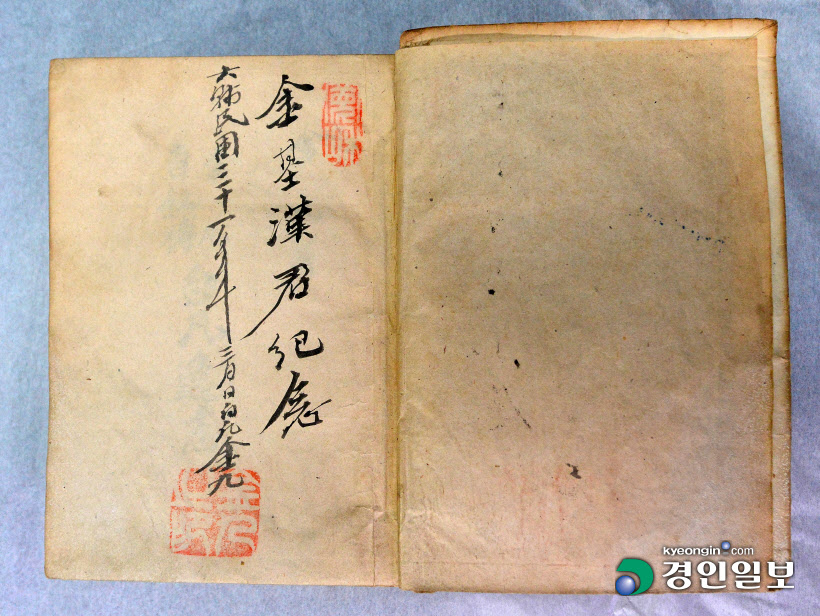 金基漢君紀念
大韓民国三十一年三月日白凡金九
金九之印
kyeongin.com
경인일보